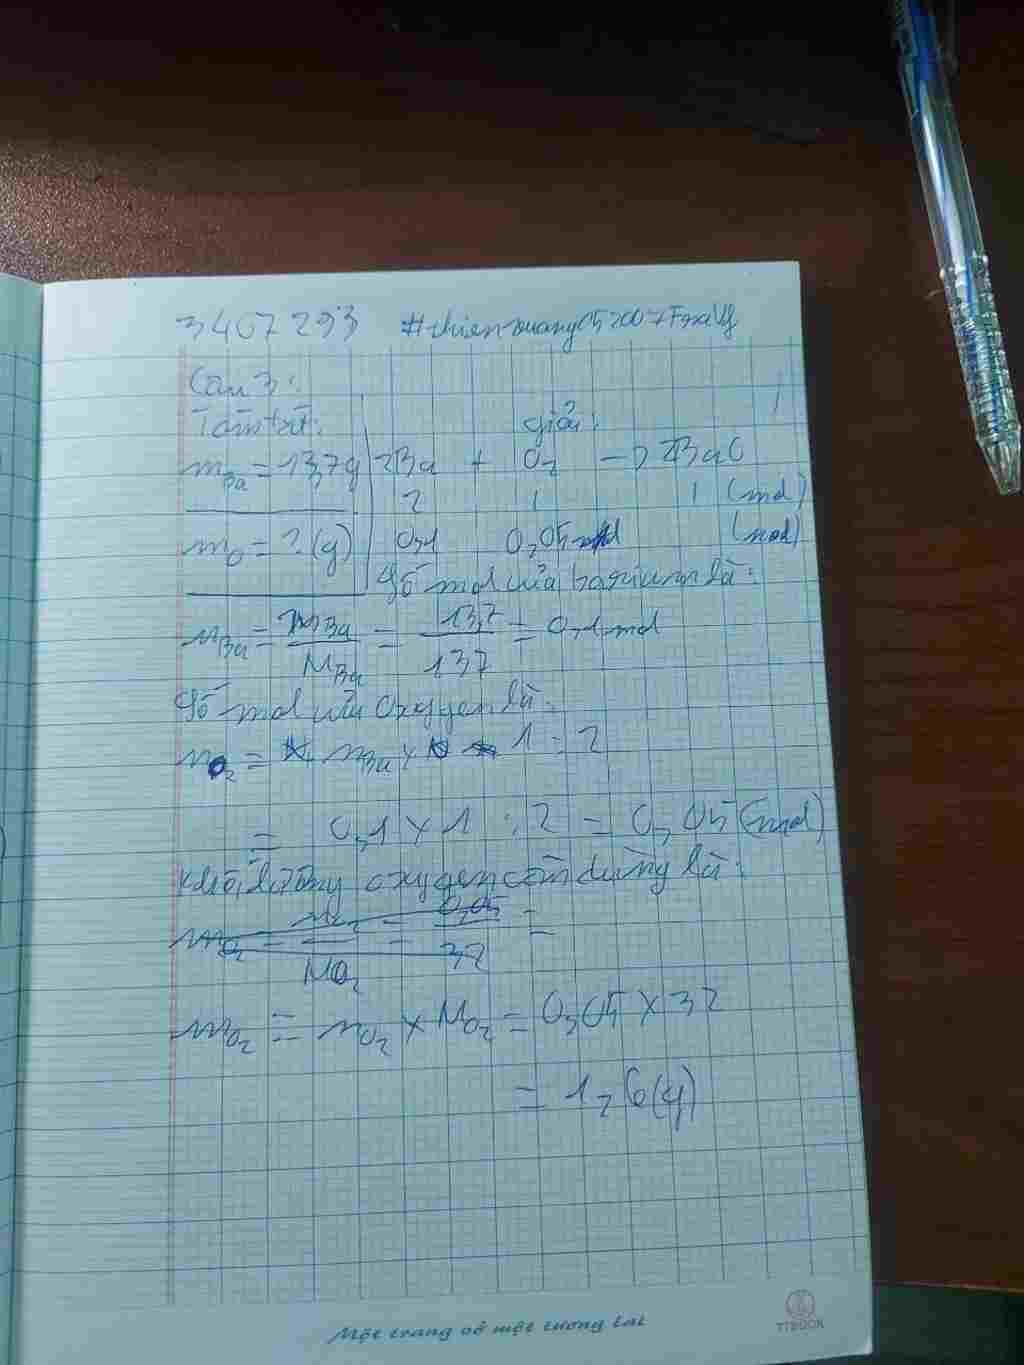 3407293 #thienquang052007
Câu 3:
Tóm tắt: giải:
mBa = 13,7g 2Ba + O2 -> 2BaO
2 1 1 (mol)
mO = ? (g) 0,1 0,05 mol (mol)
Số mol của barium là:
nBa = mBa / MBa = 13,7 / 137 = 0,1 mol
Số mol của Oxygen là:
nO2 = nBa x 1 : 2
= 0,1 x 1 : 2 = 0,05 (mol)
Khối lượng oxygen cần dùng là:
mO2 = nO2 / MO2 = 0,05 / 32 =
mO2 = nO2 x MO2 = 0,05 x 32
= 1,6 (g)
Một trang vở một tương lai
TTBOOK